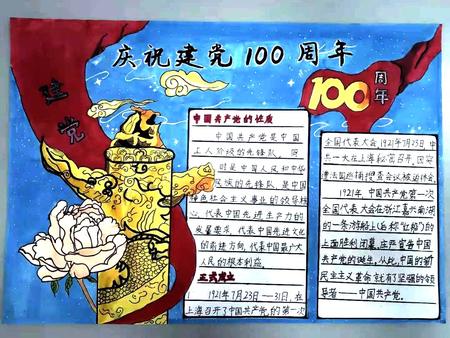 庆祝建党100周年
建党
100周年
中国共产党的性质
中国共产党是中国
工人阶级的先锋队，同
时是中国人民和中华
民族的先锋队，是中国
特色社会主义事业的领导核
心，代表中国先进生产力的
发展要求，代表中国先进文
化的前进方向，代表中国最广大
人民的根本利益。
正式成立
1921年7月23日——31日，在
上海召开了中国共产党的第一次
全国代表大会，1921年7月23日中
共一大在上海秘密召开，因突
遭法国巡捕搜查会议被迫休会。
1921年，中国共产党第一次
全国代表大会在浙江嘉兴南湖
的一条游船上（后称“红船”）的
上面胜利闭幕，庄严宣告中国
共产党的诞生。从此，中国的新
民主主义革命就有了坚强的领
导者——中国共产党。